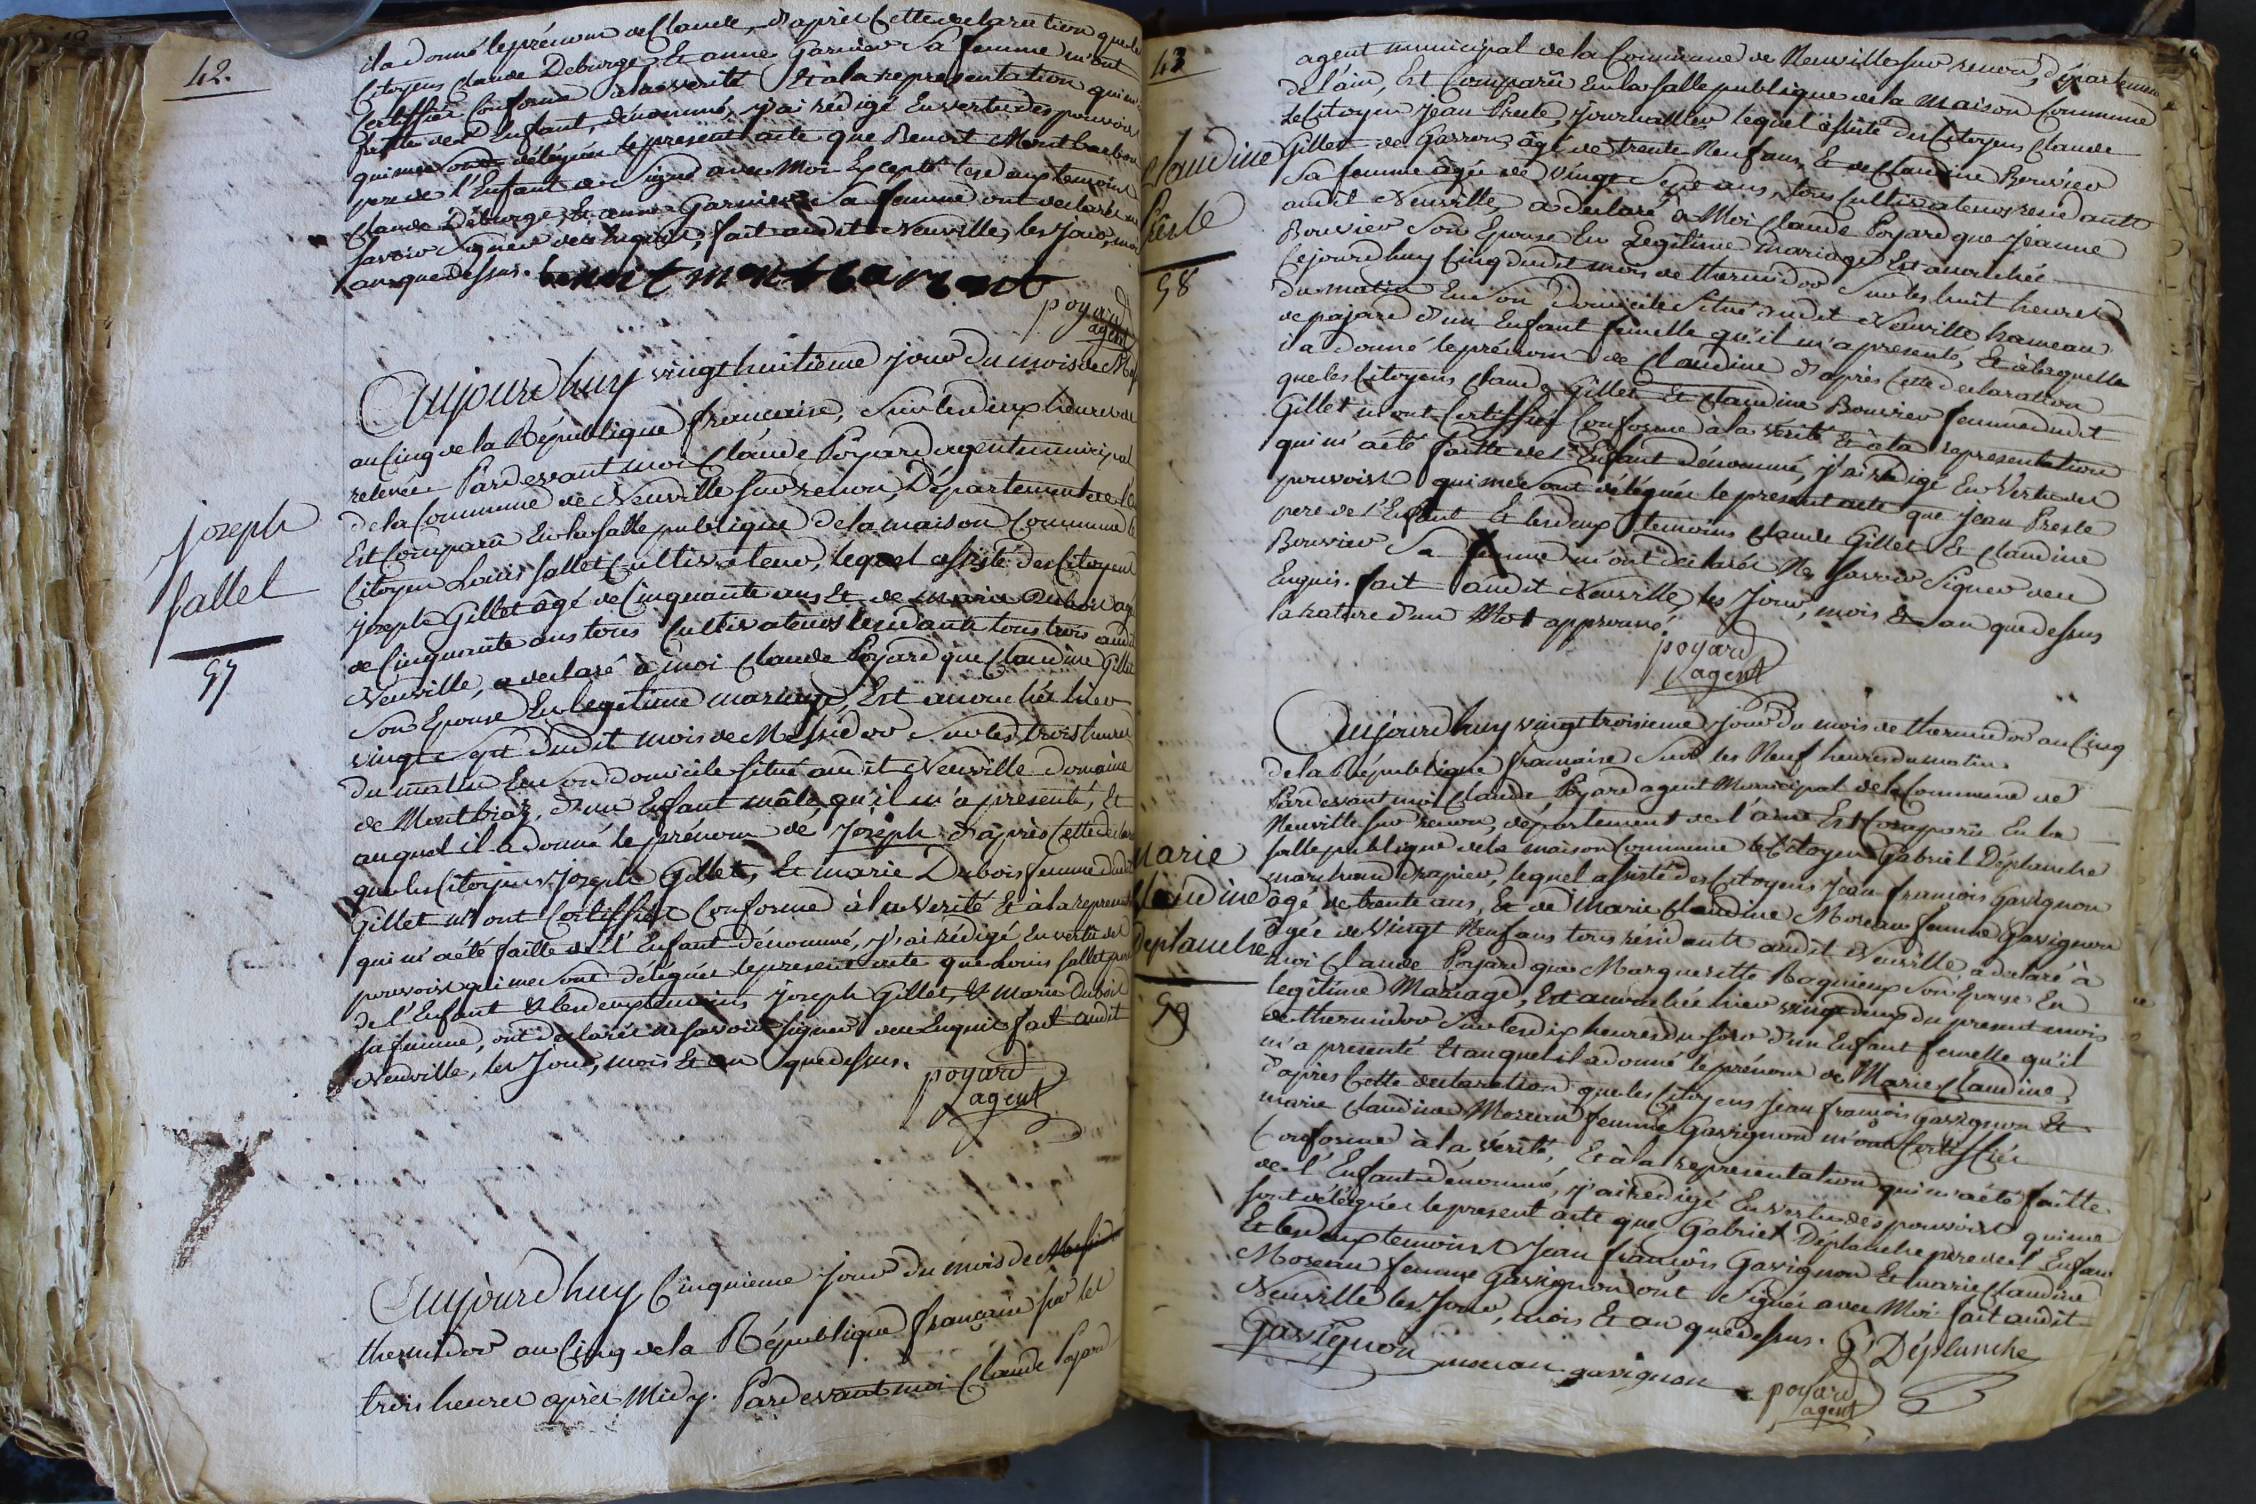 42.
il a donné le prénom de Claude, d'après cette declaration que les
Citoyens Claude Deburge, Et anne Garnier sa femme m'ont
Certiffiér Conforme à la verité Et à la representation qui m'a
faitte de l'Enfant, dénommé, j'ai rédigé En vertu des pouvoirs
qui me sont délégués le present acte que Benoit Montbarbon
pere de l'Enfant a Signé avec Moi Excepté les deux temoins
Claude Deburge, Et anne Garnier Sa femme ont declaré ne
savoir Signer de ce Enquis, fait audit Neuville, les Jour, mois
an que dessus. benoit montbarbont
poyard
agent
joseph
sallet
57
Aujourdhuy vingt huitieme jour du mois de Mess
an Cinq de la République française, Sur les deux heures de
relevée Pardevant moi Claude Poyard agent municipal
de la Commune de Neuville sur renon, Département de l'
Est Comparû En la salle publique de la maison Commune le
Citoyen Louis sallet Cultivateur, lequel assisté des Citoyens
joseph Gillet âgé de Cinquante ans Et de marie Dubois agé
de Cinquante ans tous Cultivateurs residants tous trois audit
Neuville, a declaré à moi Claude Poyard que Claudine Gillet
Son Epouse En legitime mariage, Est accouchée hier
vingt Sept dudit mois de Messidor Sur les trois heures
du matin En Son domicile situé audit Neuville domaine
de Montbiaz, d'un Enfant mâle, qu'il m'a presenté, Et
auquel il a donné le prénom de Joseph d'après Cette declara
que les Citoyens Joseph Gillet, Et marie Dubois femme dudit
Gillet m'ont Certiffiér Conforme à la verité Et à la represent
qui m'a été faitte de l'Enfant dénommé, j'ai rédigé En vertu des
pouvoirs qui me sont délégués le present acte que Louis sallet pere
de l'Enfant & les deux temoins joseph Gillet, & marie Dubois
sa femme, ont declarés ne savoir signer de ce Enquis fait audit
Neuville, les Jour, mois Et an que dessus.
poyard
agent
Aujourdhuy Cinquieme jour du mois de Messidor
thermidor an Cinq de la République française sur les
trois heures après Midy. Pardevant moi Claude Poyard
43
agent municipal de la Commune de Neuville sur renon, département
de l'ain, Est Comparû En la salle publique de la Maison Commune
Le Citoyen Jean Preste, journallier lequel assisté des Citoyens Claude
Claudine
Preste
58
Gillet de Gassron, âgé de trente Neuf ans, Et de Claudine Bouvier
Sa femme âgée de vingt Sept ans, tous Cultivateurs residants
audit Neuville, a declaré à Moi Claude Poyard que Jeanne
Bouvier Son Epouse En Legitime mariage Est accouchée
Cejourdhuy Cinq dudit mois de thermidor Sur les huit heures
du matin En Son Domicile Situé audit Neuville hameau
de pajard d'un Enfant femelle qu'il m'a presenté, Et à laquelle
il a donné le prénom de Claudine d'après Cette declaration
que les Citoyens Claude Gillet Et Claudine Bouvier femme dudit
Gillet m'ont Certiffiér Conforme à la verité Et à la representation
qui m'a été faitte de l'Enfant dénommé, j'ai rédigé En Vertu des
pouvoirs qui me sont délégués le present acte que Jean Preste
pere de l'Enfant & les deux temoins Claude Gillet Et Claudine
Bouvier Sa femme m'ont declarés Ne Savoir Signer de ce
Enquis. fait audit Neuville, les Jour, mois & an que dessus
la rature d'un Mot approuvé.
poyard
agent
Aujourdhuy vingt troisieme jour du mois de thermidor an Cinq
de la République française Sur les Neuf heures du matin
Pardevant moi Claude Poyard agent Municipal de la Commune de
Neuville sur renon, département de l'ain Est Comparû En la
salle publique de la maison Commune le Citoyen Gabriel Déplanche
marchand drapier, lequel assisté des Citoyens Jean françois Gavignon
marie
Claudine
deplanche
59
âgé de trente ans, Et de Marie Claudine Moreau femme Gavignon
agée de Vingt Neuf ans tous résidants audit Neuville, a declaré à
moi Claude Poyard que Marguerite Son Epouse En
legitime Mariage, Est accouchée hier vingt deux du present mois
de thermidor Sur les dix heures du soir d'un Enfant femelle qu'il
m'a presenté Et auquel il a donné le prénom de Marie Claudine,
d'après Cette declaration que les Citoyens Jean françois Gavignon Et
marie Claudine Moreau femme Gavignon m'ont Certiffiér
Conforme à la Verité, Et à la representation qui m'a été faitte
de l'Enfant dénommé, j'ai rédigé En vertu des pouvoirs qui me
sont délégués le present acte que Gabriel Deplanche pere de l'Enfant
Et les deux temoins Jean françois Gavignon Et marie Claudine
Moreau femme Gavignon ont Signés avec Moi fait audit
Neuville les Jour, mois Et an que dessus. G Déplanche
Gavignon moreau gavignon poyard
agent